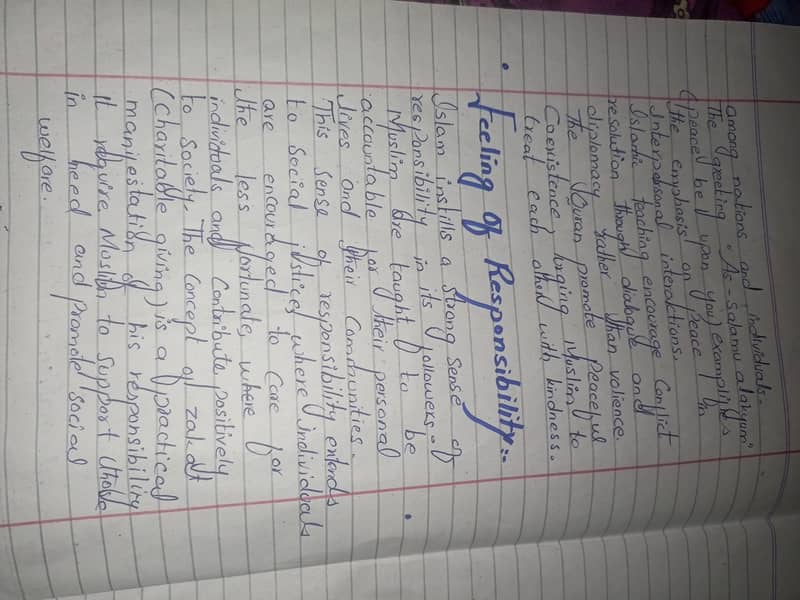 among nations and individuals.
The greeting "As salamu alakyum"
(peace be upon you) examplifies
the emphasis on Peace in
International interactions.
Islamic teaching encourage Conflict
resolution through dialogue and
diplomacy rather than volience.
The Quran promote peaceful
Coexistence, urging Muslim to
treat each other with kindness.
• Feeling of Responsibility:-
Islam instills a strong sense of
responsibility in its followers.
Muslim are taught to be
accountable for their personal
lives and their communities.
This sense of responsibility extends
to social justice, where individuals
are encouraged to Care for
the less fortunate, where
individuals and contribute positively
to Society. The concept of zakat
(Charitable giving) is a practical
manifestation of his responsibility
It require Muslim to support those
in need and promote social
welfare.